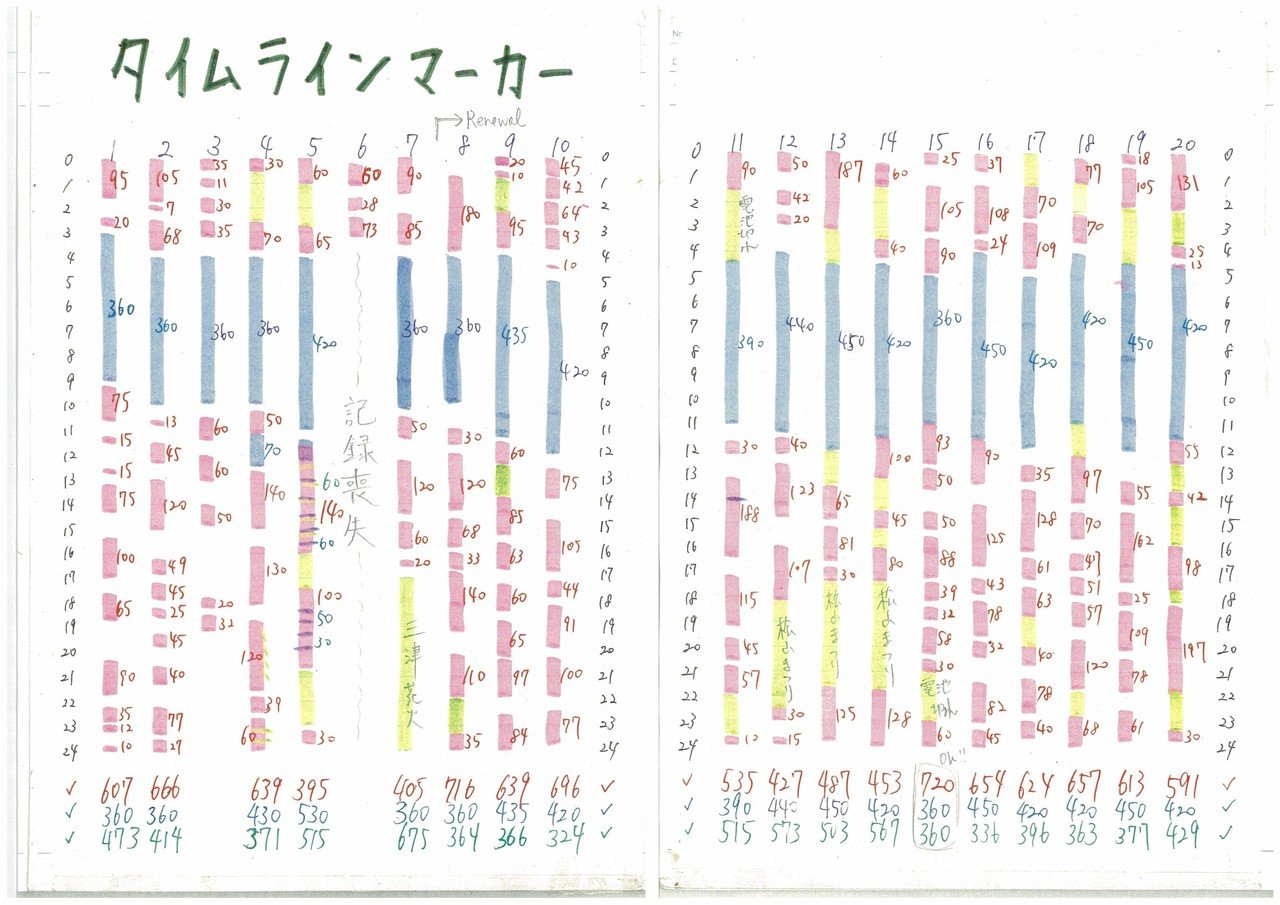 タイムラインマーカー
→Renewal
1 2 3 4 5 6 7 8 9 10
11 12 13 14 15 16 17 18 19 20
0
1
2
3
4
5
6
7
8
9
10
11
12
13
14
15
16
17
18
19
20
21
22
23
24
95
20
360
75
15
15
75
100
65
90
35
12
10
105
7
68
360
13
45
120
49
45
25
45
40
77
27
35
11
30
35
360
60
60
50
20
32
30
70
360
50
70
140
130
120
39
60
60
65
420
60
140
60
100
50
30
30
60
28
73
記録喪失
90
85
360
50
120
60
20
三津花火
180
360
30
120
68
33
140
110
35
20
10
95
435
60
85
63
60
65
97
84
45
42
64
43
10
420
75
105
44
91
100
77
90
電池切れ
390
30
188
115
45
57
10
50
42
20
440
40
123
107
松山まつり
30
15
187
450
65
81
30
松山まつり
125
60
40
420
100
45
80
松山まつり
128
25
105
90
360
93
50
50
88
39
32
58
30
電池切れ
60
37
108
24
450
90
125
43
78
32
82
45
70
109
420
35
128
61
63
40
78
40
77
70
420
97
70
47
51
57
120
68
18
105
450
55
162
25
109
78
61
131
25
13
420
55
42
98
197
30
Oh!!
✓ 607 666 639 395 405 716 639 696 ✓
✓ 360 360 430 530 360 360 435 420 ✓
✓ 473 414 371 515 675 364 366 324 ✓
✓ 535 427 487 453 720 654 624 657 613 591 ✓
✓ 390 440 450 420 360 450 420 420 450 420 ✓
✓ 515 573 503 567 360 336 396 363 377 429 ✓